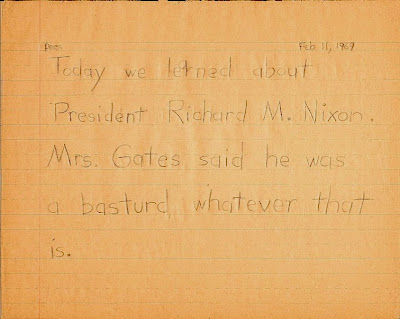 Feb 11, 1969
Today we lerned about
President Richard M. Nixon.
Mrs. Gates said he was
a basturd whatever that
is.